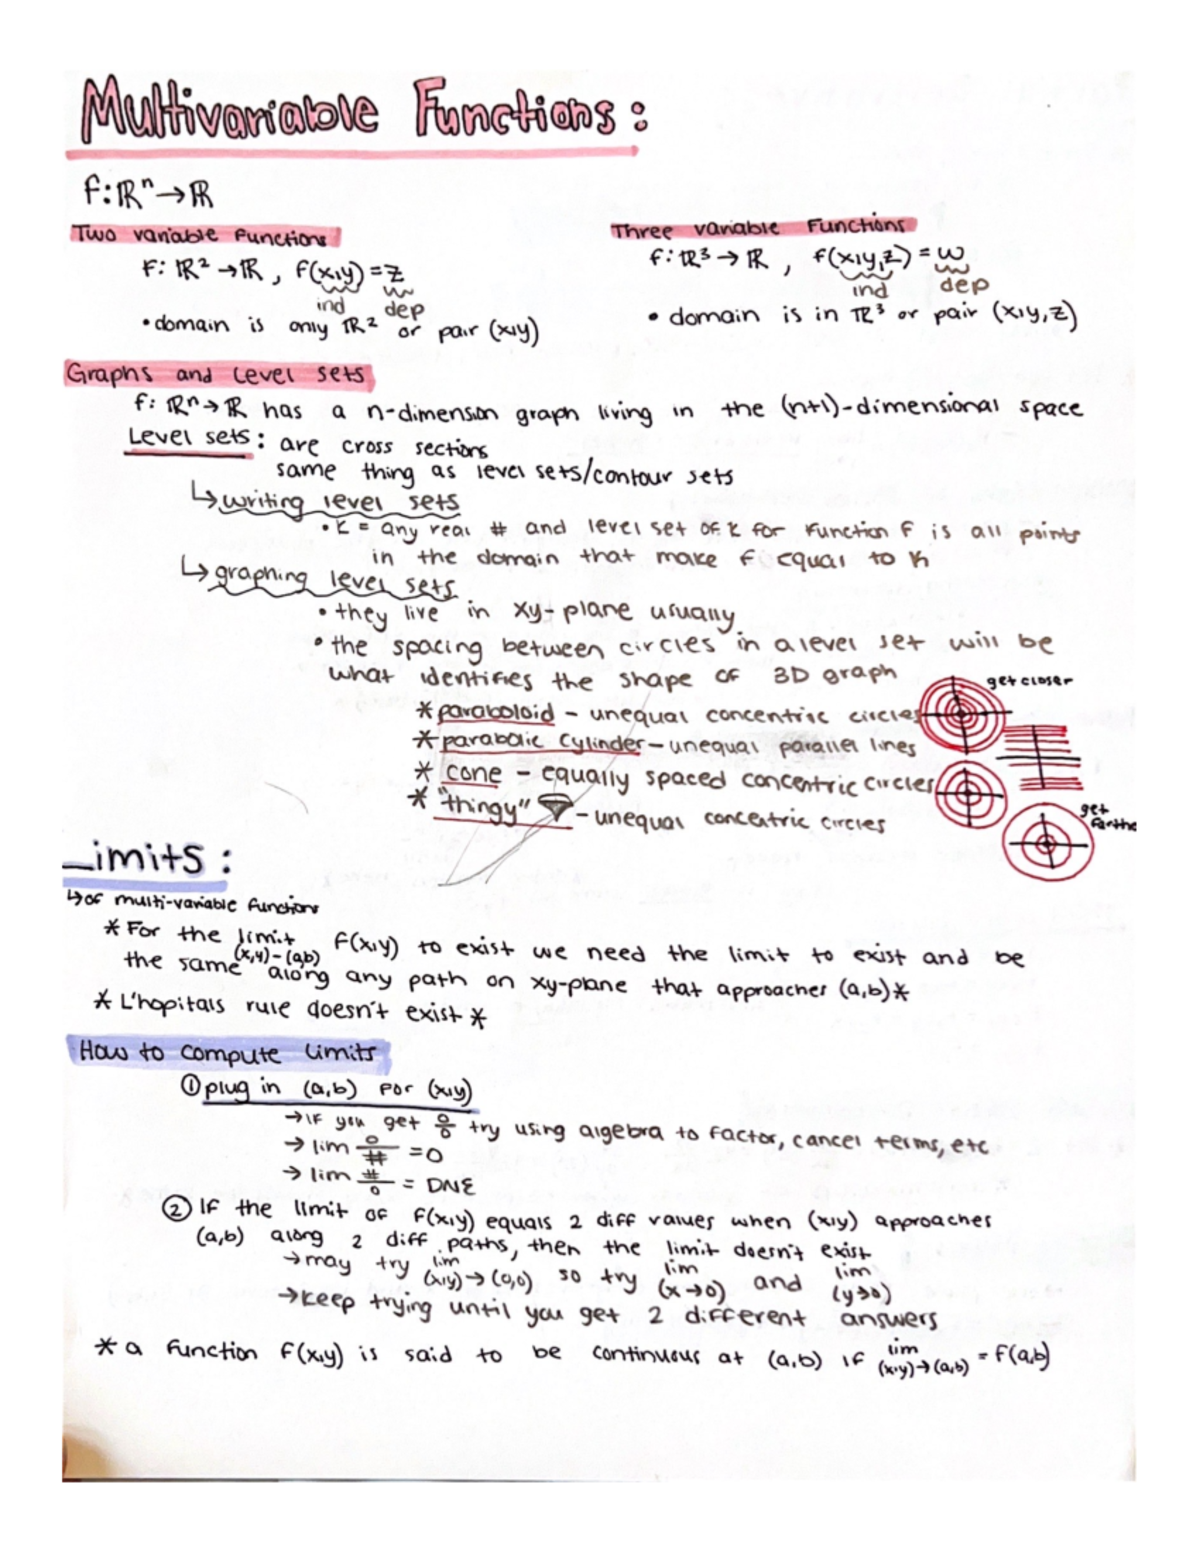 Multivariable Functions:
f: ℝⁿ → ℝ
Two variable Functions
f: ℝ² → ℝ , f(x,y) = z
ind dep
• domain is only ℝ² or pair (x,y)
Three variable Functions
f: ℝ³ → ℝ , f(x,y,z) = w
ind dep
• domain is in ℝ³ or pair (x,y,z)
Graphs and Level sets
f: ℝⁿ → ℝ has a n-dimension graph living in the (n+1)-dimensional space
Level sets: are cross sections
same thing as level sets/contour sets
↳ writing level sets
• K = any real # and level set of K for function f is all points
in the domain that make f equal to K
↳ graphing level sets
• they live in xy-plane usually
• the spacing between circles in a level set will be
what identifies the shape of 3D graph
* paraboloid - unequal concentric circles
get closer
* parabolic cylinder - unequal parallel lines
* cone - equally spaced concentric circles
* "thingy" - unequal concentric circles
get
farthe
Limits:
↳ of multi-variable functions
* For the limit (x,y)-(a,b) f(x,y) to exist we need the limit to exist and be
the same along any path on xy-plane that approaches (a,b) *
* L'hopitals rule doesn't exist *
How to compute Limits
① plug in (a,b) for (x,y)
→ if you get 0/0 try using algebra to factor, cancel terms, etc
→ lim 0/# = 0
→ lim #/0 = DNE
② If the limit of f(x,y) equals 2 diff values when (x,y) approaches
(a,b) along 2 diff paths, then the limit doesn't exist
→ may try lim (x,y)→(0,0) so try lim (x→0) and lim (y→0)
→ keep trying until you get 2 different answers
* a function f(x,y) is said to be continuous at (a,b) if lim (x,y)→(a,b) = f(a,b)